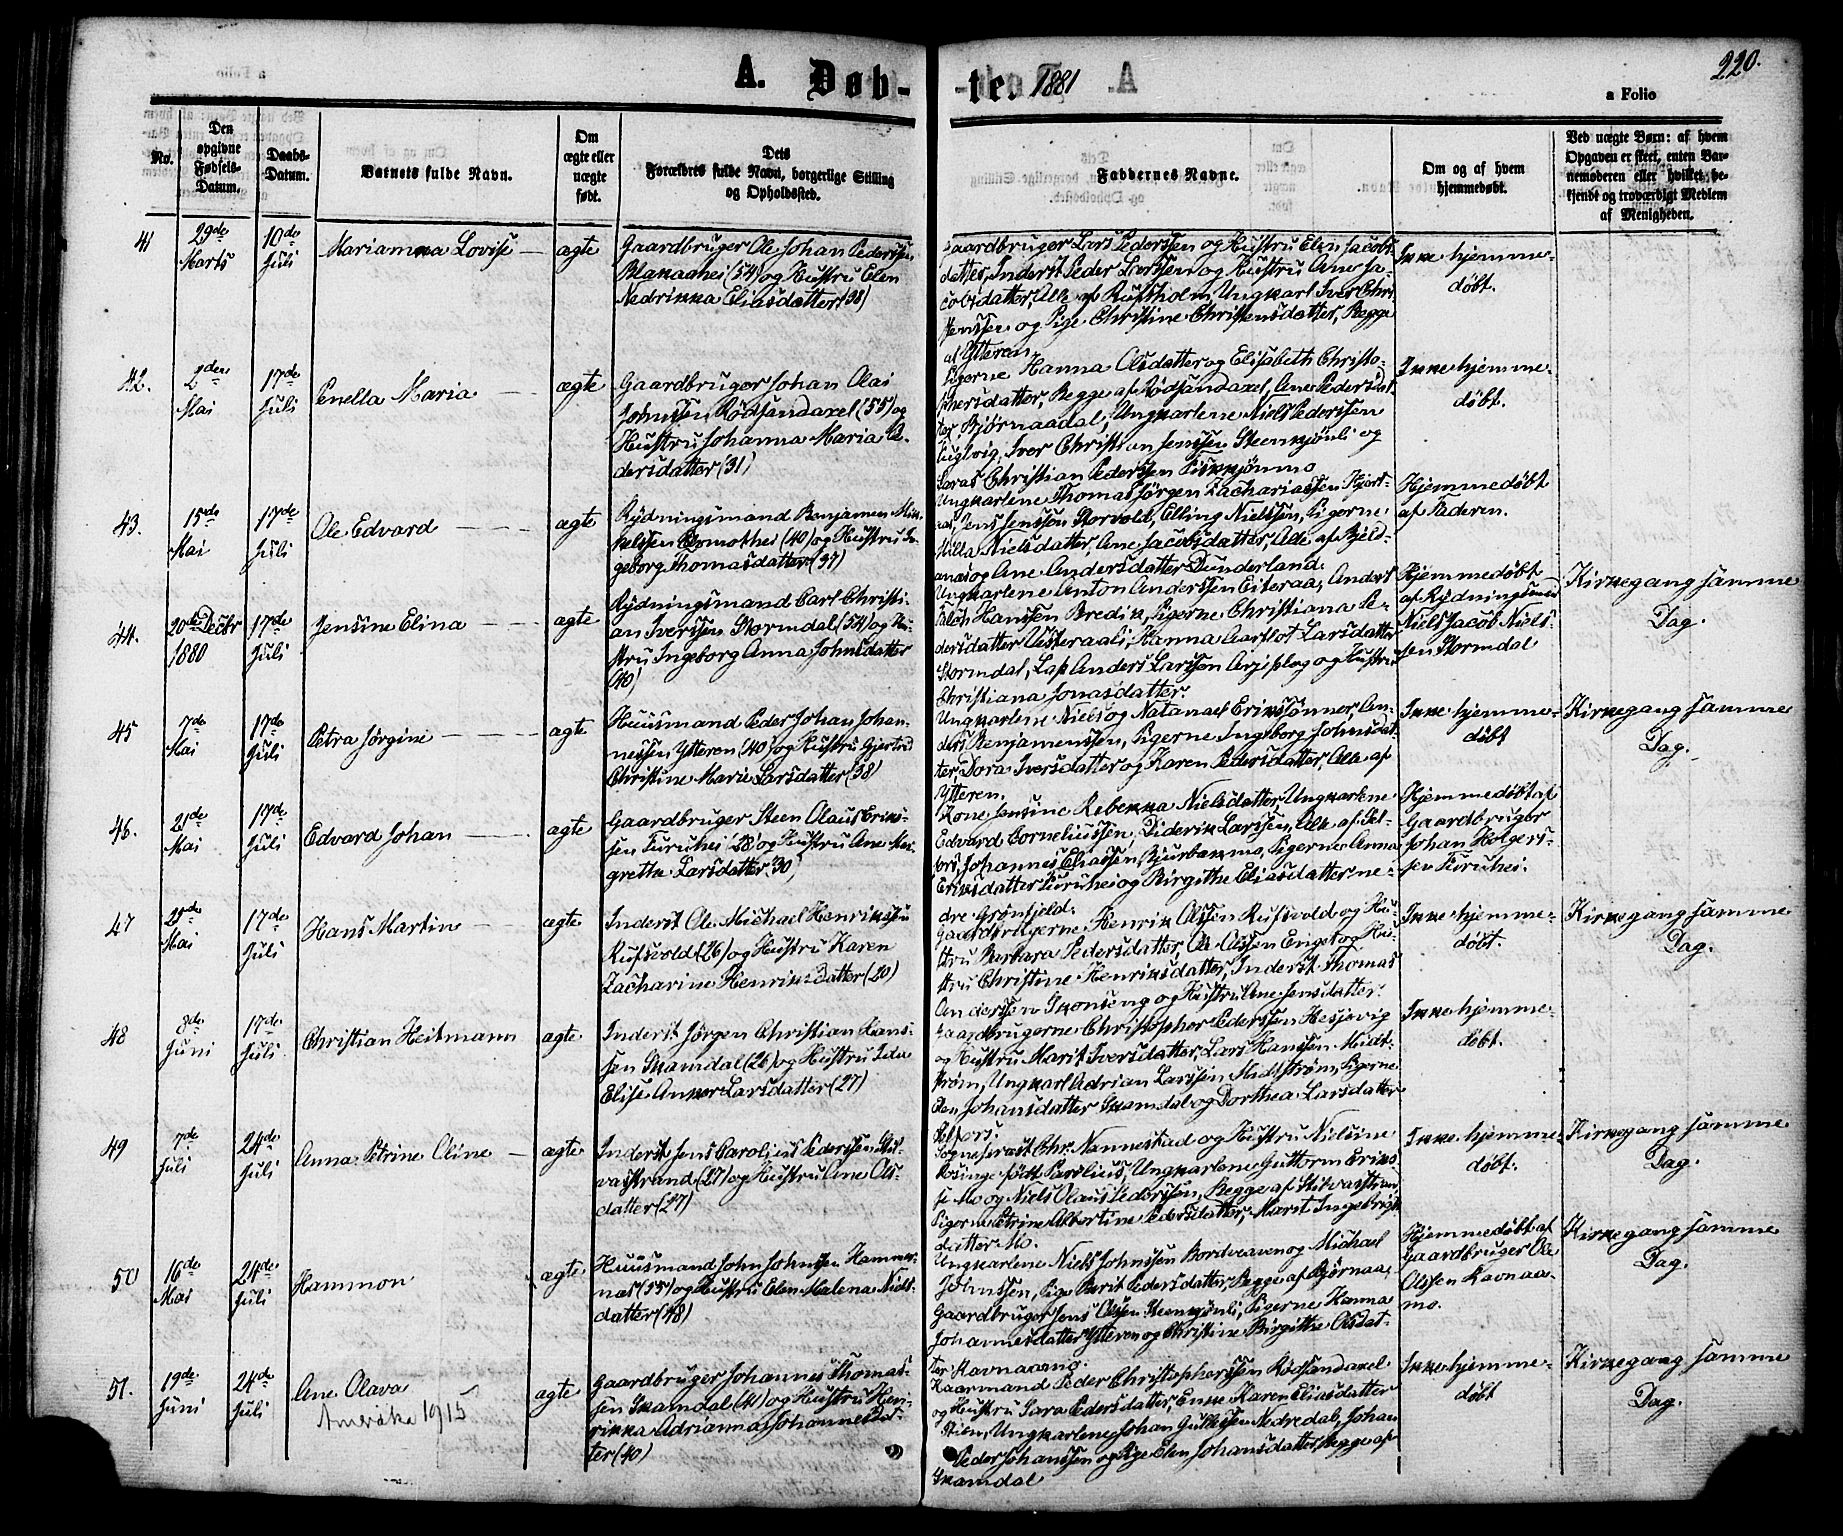 220.
A. Døb-
-te. 1881
a Folio
No.
Den
opgivne
Fødsels-
Datum.
Daabs-
Datum.
Barnets fulde Navn.
Om
ægte eller
uægte
født.
Dets
Forældres fulde Navn, borgerlige Stilling
og Opholdssted.
Faddernes Navne.
Om og af hvem
hjemmedøbt.
Ved uægte Børn: af hvem
Opgaven er skeet, enten Bar-
nemoderen eller hvilket be-
kjendt og troværdigt Medlem
af Menigheden.
41
29de
Marts
10de
Juli
Marianna Lovise
ægte
Gaardbruger Ole Johan Pederssen
Blakaahei (54) og Hustru Elen
Nedrikka Eliasdatter (38)
Gaardbruger Lars Pederssen og Hustru Elen Jacobs-
datter, Inderst Peder Larssen og Hustru Ane Ja-
cobsdatter, Alle af Rufsholm, Ungkarl Iver Chri-
stenssen og Pige Christine Christensdatter, Begge
af Ytteren.
Ikke hjemme-
døbt.
42.
2den
Mai
17de
Juli
Penella Maria
ægte
Gaardbruger Johan Olai
Johnssen Rødsandaxel (55) og
Hustru Johanna Maria Pe-
dersdatter (31)
Pigerne Hanna Olsdatter og Elisabeth Christo-
phersdatter, Begge af Rødsandaxel, Ane Pedersdat-
ter, Bjørnaadal, Ungkarlene Niels Pederssen
Fuglvig, Iver Christian Jenssen Steenkjønli og
Laras Christian Pederssen Fiskkjønmo
Ikke hjemme-
døbt.
43.
15de
Mai
17de
Juli
Ole Edvard
ægte
Rydningsmand Benjamen Mik-
kelssen Ormothei (40) og Hustru In-
geborg Thomasdatter (37)
Ungkarlene Thomas Jørgen Zachariassen Hjort-
aas, Jens Jenssen Storvold, Elling Nielssen, Pigerne
Milla Nielsdatter, Ane Jacobsdatter, Alle af Bjeld-
anæs og Ane Andersdatter Dunderland.
Hjemmedøbt
af Faderen.
44.
20de Decbr
1880
17de
Juli
Jensine Elina
ægte
Rydningsmand Carl Christi-
an Iverssen Stormdal (54) og Hu-
stru Ingeborg Anna Johnsdatter
(40)
Ungkarlene Anton Anderssen Eiteraa, Anders
Hanssen Bredik, Pigerne Christiana Pe-
dersdatter Vesteraali, Hanna Larsdatter
Stormdal, Lap Anders Larssen Arjeplog og Hustru
Christiana Jonasdatter.
Hjemmedøbt
af Rydningsmand
Niels Jacob Niels-
sen Stormdal
Kirkegang samme
Dag.
45
7de
Mai
17de
Juli
Petra Jørgine
ægte
Huusmand Peder Johan Johan-
nessen Ytteren (40) og Hustru Gjertrud
Christine Marie Larsdatter (38)
Ungkarlene Niels og Natanael Erikssønner, An-
ders Benjamenssen, Pigerne Ingeborg Johnsdat-
ter, Dora Iversdatter og Karen Pedersdatter Alle af
Ytteren.
Ikke hjemme-
døbt
Kirkegang samme
Dag.
46.
21de
Mai
17de
Juli
Edvard Johan
ægte
Gaardbruger Steen Olaus Eriks-
sen Furuhei (28) og Hustru Ane Mar-
grethe Larsdatter (30)
Kone Jensine Rebekka Nielsdatter, Ungkarlene
Edvard Corneliussen, Diderik Larssen, Alle af Sel-
fors, Johannes Eliassen Bjurbækmo, Pigerne Anna
Eriksdatter Furuhei og Birgithe Eliasdatter ne-
dre Grønfjeld.
Hjemmedøbt af
Gaardbruger
Johan Holgers-
sen Furuhei.
47
29de
Mai
17de
Juli
Hans Martin
ægte
Inderst Ole Michael Henrikssen
Rufsvold (26) og Hustru Karen
Zacharine Henriksdatter (20)
Gaardbrugerne Henrik Olssen Rufsvold og Hu-
stru Barbara Pedersdatter, Ole Olssen Enget og Hu-
stru Christine Henriksdatter, Inderst Thomas
Anderssen Skonseng og Hustru Ane Jensdatter.
Ikke hjemme-
døbt.
Kirkegang samme
Dag.
48
8de
Juni
17de
Juli
Christian Heitmann
ægte
Inderst Jørgen Christian Hans-
sen Skamdal (26) og Hustru
Elise Anker Larsdatter (27)
Gaardbrugerne Christopher Pederssen Hesjevig
og Hustru Marit Iversdatter, Lars Hanssen Midt-
strøm, Ungkarl Adrian Larssen Midtstrøm, Pigerne
Elen Johansdatter Skamdal og Dorthea Larsdatter
Selfors.
Ikke hjemme-
døbt.
49
7de
Juli
24de
Juli
Anna Petrine Oline
ægte
Inderst Jens Paroljus Pederssen Stil-
vasstrand (27) og Hustru Ane Ols-
datter (27)
Sognepræst Chr. Nannestad og Hustru Nielsine
født Parelius, Ungkarlene Guttorm Eriks-
sen Mo og Niels Olaus Pederssen, Begge af Stilvasstrand
Pigerne Petrine Albertine Pedersdatter, Marit Ingebrigt-
datter Mo.
Ikke hjemme-
døbt.
Kirkegang samme
Dag.
50
16de
Mai
24de
Juli
Hammon
ægte
Huusmand John Johnssen Hammer-
næs (55) og Hustru Elen Malena Niels-
datter (48)
Ungkarlene Niels Johnssen Bordveaven og Michael
Johnssen, Pige Berit Pedersdatter, Begge af Bjørnaa,
Gaardbruger Jens Olssen Steenkjønli, Pigerne Hanna
Johannesdatter Ytteren og Christine Birgithe Olsdat-
ter Ravnaamo.
Hjemmedøbt af
Gaardbruger Ole
Olssen Ravnaa-
mo.
Kirkegang samme
Dag.
51.
19de
Juni
24de
Juli
Ane Olava
Amerika 1915
ægte
Gaardbruger Johannes Thomas-
sen Skamdal (41) og Hustru Hen-
rikka Adrianna Johannesdat-
ter (40)
Kaarmand Peder Christopherssen Rødsandaxel
og Hustru Sara Pedersdatter, Enke Karen Eliasdatter
Stien, Ungkarlene Johan Nedredal, Johan
Peder Johanssen og Pige Elen Johansdatter, Begge af
Skamdal
Ikke hjemme-
døbt
Kirkegang samme
Dag.